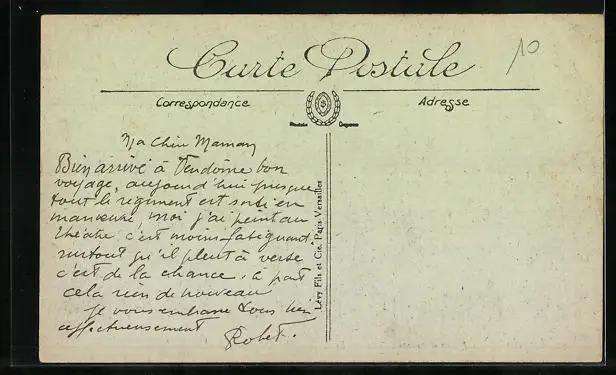 Carte Postale
10
Correspondance
Adresse
Ma Chère Maman
Bien arrivé à Vendôme bon
voyage, aujourd'hui presque
tout le régiment est sorti en
manœuvre, moi j'ai peint au
théâtre c'est moins fatiguant,
surtout qu'il pleut à verse
c'est de la chance. à part
cela rien de nouveau
je vous embrasse tous bien
affectueusement
Robet.
Lévy Fils et Cie, Paris-Versailles